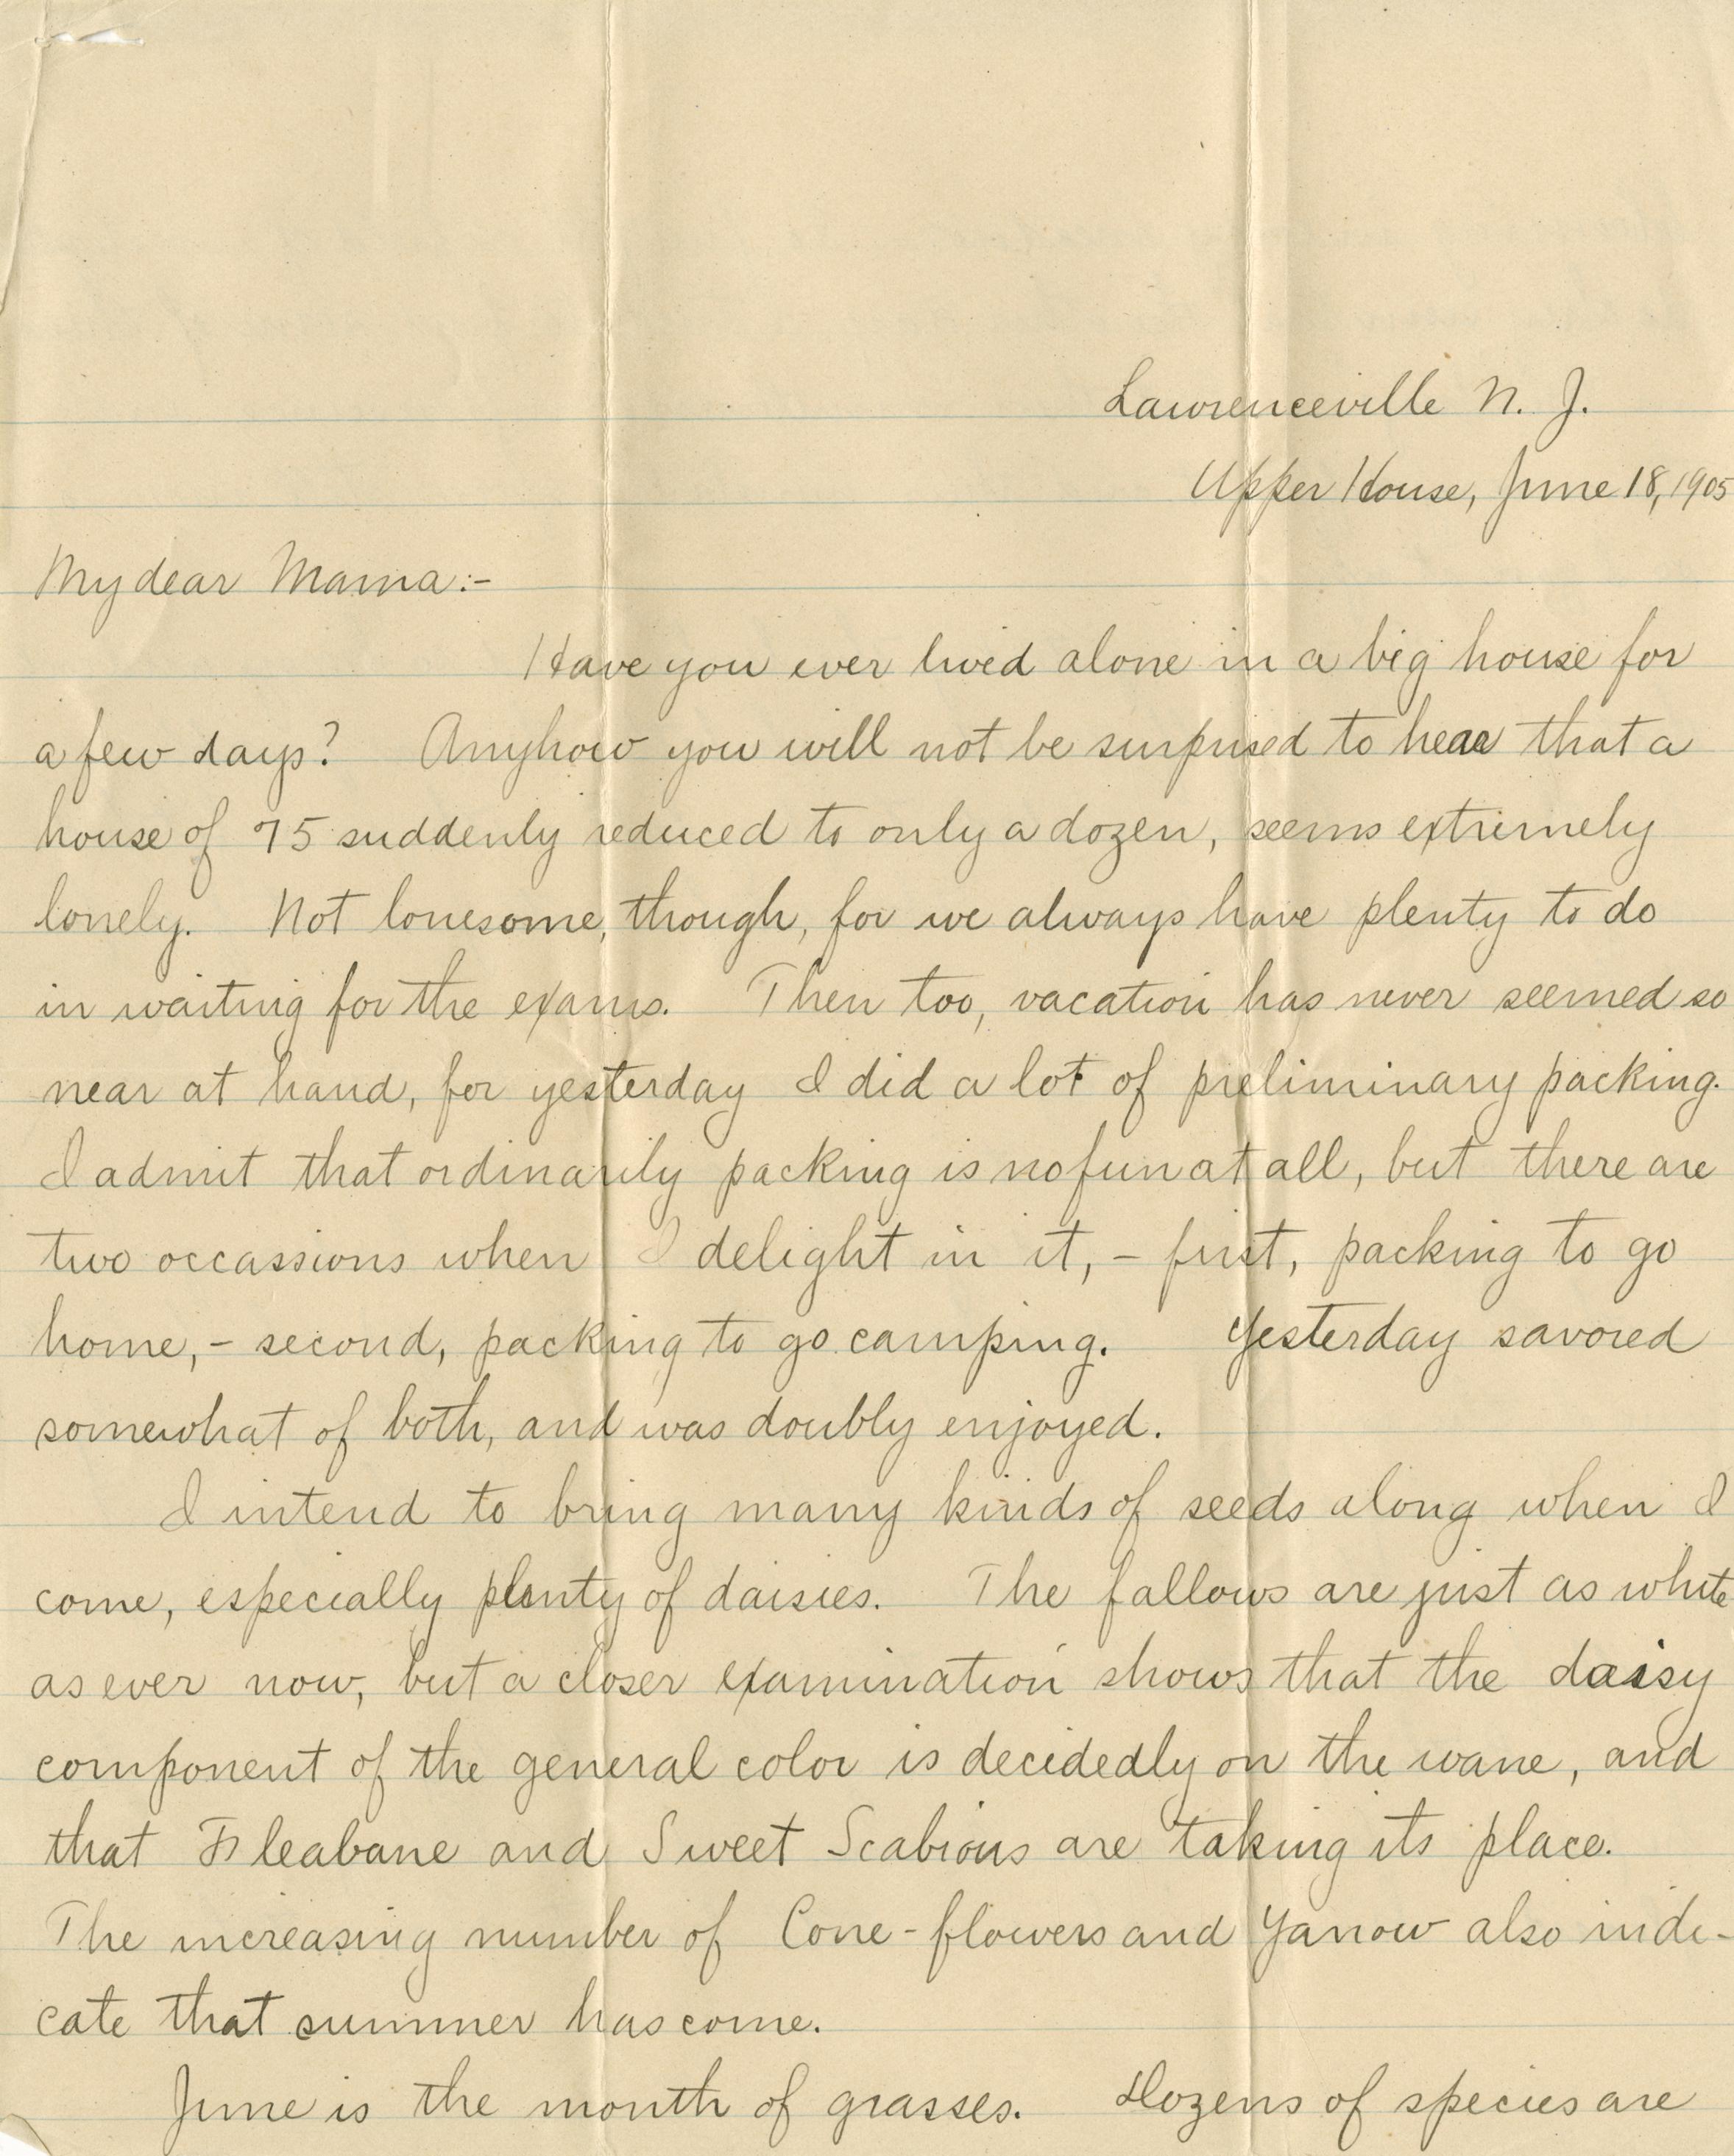 Lawrenceville N. J.
Upper House, June 18, 1905
My dear Mama:-
Have you ever lived alone in a big house for
a few days? Anyhow you will not be surprised to hear that a
house of 75 suddenly reduced to only a dozen, seems extremely
lonely. Not lonesome, though, for we always have plenty to do
in waiting for the exams. Then too, vacation has never seemed so
near at hand, for yesterday I did a lot of preliminary packing.
I admit that ordinarily packing is no fun at all, but there are
two occassions when I delight in it, - first, packing to go
home, - second, packing to go camping. Yesterday savored
somewhat of both, and was doubly enjoyed.
I intend to bring many kinds of seeds along when I
come, especially plenty of daisies. The fallows are just as white
as ever now, but a closer examination shows that the daisy
component of the general color is decidedly on the wane, and
that Fleabane and Sweet Scabious are taking its place.
The increasing number of Cone-flowers and Yarrow also indi-
cate that summer has come.
June is the month of grasses. Dozens of species are